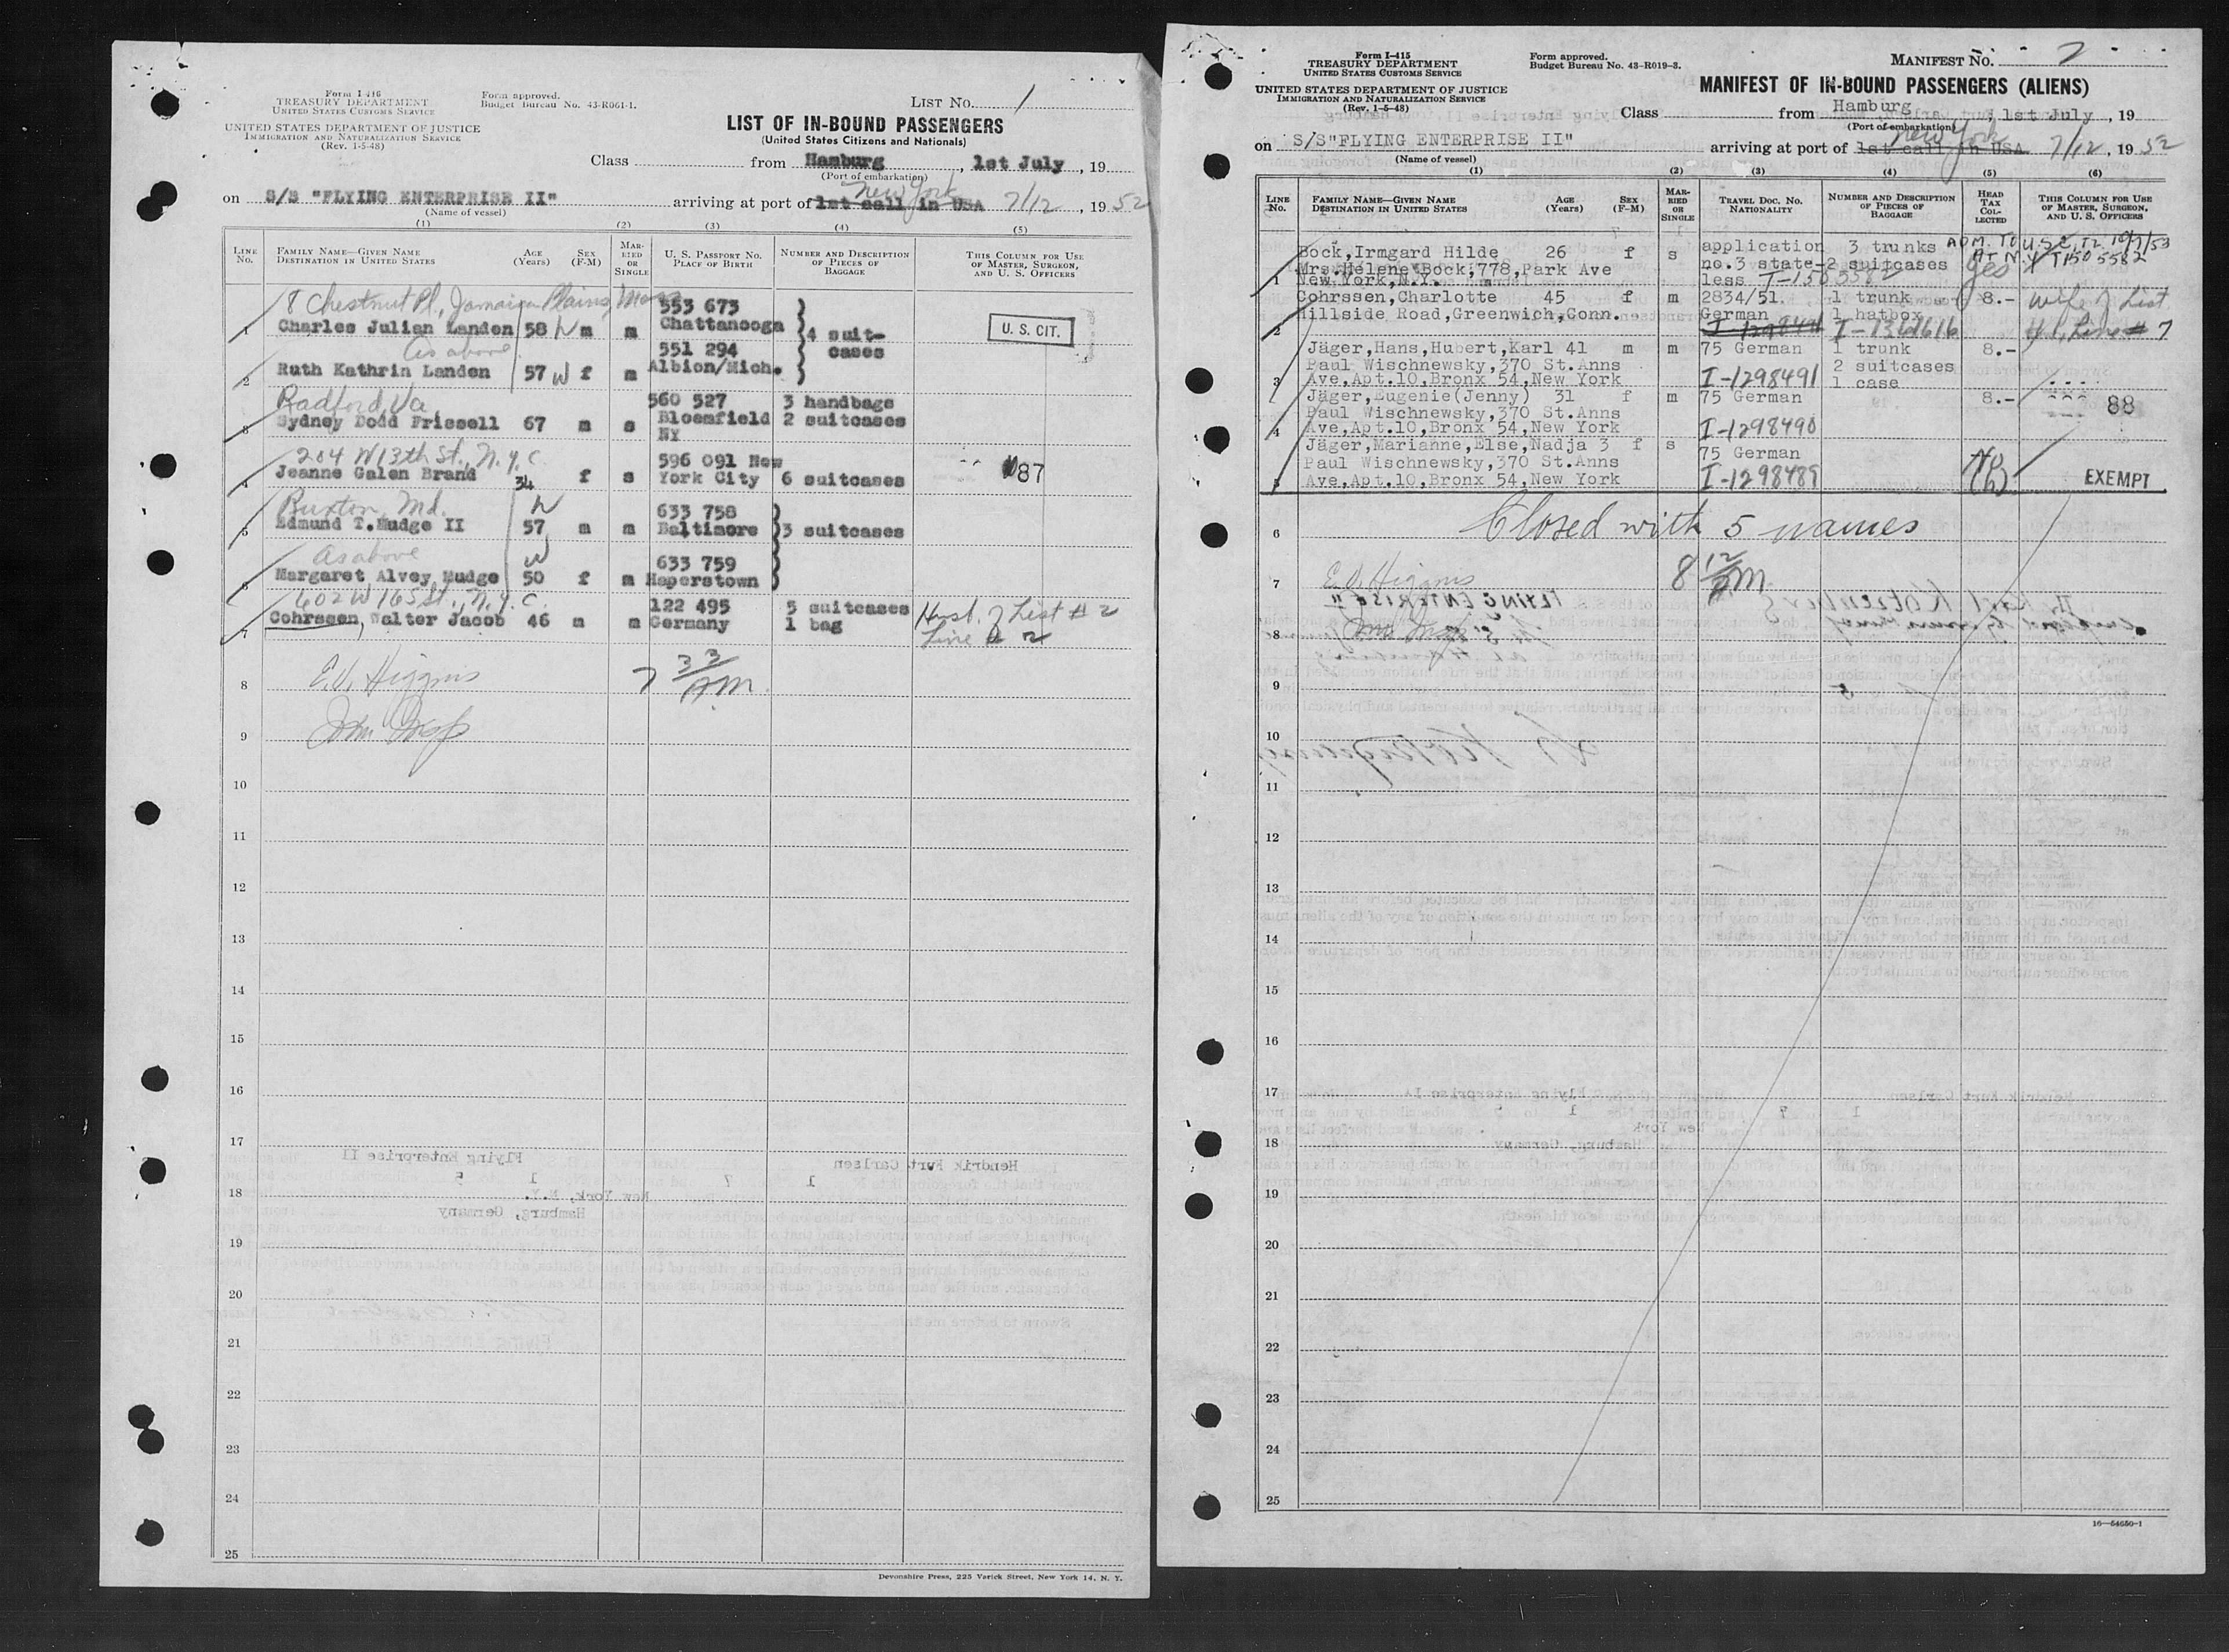 Form I-416
TREASURY DEPARTMENT
UNITED STATES CUSTOMS SERVICE
Form approved.
Budget Bureau No. 43-R061-1.
LIST NO. 1
UNITED STATES DEPARTMENT OF JUSTICE
IMMIGRATION AND NATURALIZATION SERVICE
(Rev. 1-5-48)
LIST OF IN-BOUND PASSENGERS
(United States Citizens and Nationals)
Class from Hamburg, 1st July, 19
(Port of embarkation)
on S/S "FLYING ENTERPRISE II" arriving at port of 1st call in USA New York 7/12, 1952
(Name of vessel)
(1) (2) (3) (4) (5)
LINE NO. FAMILY NAME—GIVEN NAME DESTINATION IN UNITED STATES AGE (Years) SEX (F-M) MARRIED OR SINGLE U. S. PASSPORT NO. PLACE OF BIRTH NUMBER AND DESCRIPTION OF PIECES OF BAGGAGE THIS COLUMN FOR USE OF MASTER, SURGEON, AND U. S. OFFICERS
8 Chestnut Pl., Jamaica Plains, Mass 553 673
1 Charles Julian Landen 58 W m m Chattanooga 4 suit- U. S. CIT.
As above 551 294 cases
2 Ruth Kathrin Landen 57 W f m Albion/Mich.
Radford, Va. 560 527 3 handbags
3 Sydney Dodd Frissell 67 m s Bloomfield 2 suitcases
NY
204 W 13th St., N.Y.C. 596 091 New
4 Jeanne Galen Brand 34 f s York City 6 suitcases 87
Ruxton, Md. W 633 758
5 Edmund T. Mudge II 57 m m Baltimore 3 suitcases
As above W 633 759
6 Margaret Alvey Mudge 50 f m Haperstown
602 W 165 St., N.Y.C. 122 495 5 suitcases Husb. of List # 2
7 Cohrssen, Walter Jacob 46 m m Germany 1 bag Line # 2
8 E. V. Higgins 7 33 AM
9
10
11
12
13
14
15
16
17
18
19
20
21
22
23
24
25
Devonshire Press, 225 Varick Street, New York 14, N. Y.
Form I-415
TREASURY DEPARTMENT
UNITED STATES CUSTOMS SERVICE
Form approved.
Budget Bureau No. 43-R019-3.
MANIFEST NO. 2
UNITED STATES DEPARTMENT OF JUSTICE
IMMIGRATION AND NATURALIZATION SERVICE
(Rev. 1-5-48)
MANIFEST OF IN-BOUND PASSENGERS (ALIENS)
Class from Hamburg, 1st July, 19
(Port of embarkation)
on S/S"FLYING ENTERPRISE II" arriving at port of 1st call in USA New York 7/12, 1952
(Name of vessel)
(1) (2) (3) (4) (5) (6)
LINE NO. FAMILY NAME—GIVEN NAME DESTINATION IN UNITED STATES AGE (Years) SEX (F-M) MARRIED OR SINGLE TRAVEL DOC. NO. NATIONALITY NUMBER AND DESCRIPTION OF PIECES OF BAGGAGE HEAD TAX COLLECTED THIS COLUMN FOR USE OF MASTER, SURGEON, AND U. S. OFFICERS
Bock,Irmgard Hilde 26 f s application 3 trunks ADM. TO U.S.
Mrs.Helene Bock,778,Park Ave no.3 state- 2 suitcases yes AT N.Y. T150 5582
1 New York,N.Y. less T-1505582
Cohrssen,Charlotte 45 f m 2834/51. 1 trunk 8.- Wife of List
Hillside Road,Greenwich,Conn. German 1 hatbox
2 #1, Line # 7
Jäger,Hans,Hubert,Karl 41 m m 75 German 1 trunk 8.-
Paul Wischnewsky,370 St.Anns 2 suitcases
3 Ave,Apt.10,Bronx 54,New York I-1298491 1 case
Jäger,Eugenie(Jenny) 31 f m 75 German 8.- 88
Paul Wischnewsky,370 St.Anns
4 Ave,Apt.10,Bronx 54,New York I-1298490
Jäger,Marianne,Else,Nadja 3 f s 75 German
Paul Wischnewsky,370 St.Anns No
5 Ave,Apt.10,Bronx 54,New York I-1298489 (h) EXEMPT
6 Closed with 5 names
7 E. V. Higgins 8 12 AM
8
9
10
11
12
13
14
15
16
17
18
19
20
21
22
23
24
25
16—54650-1